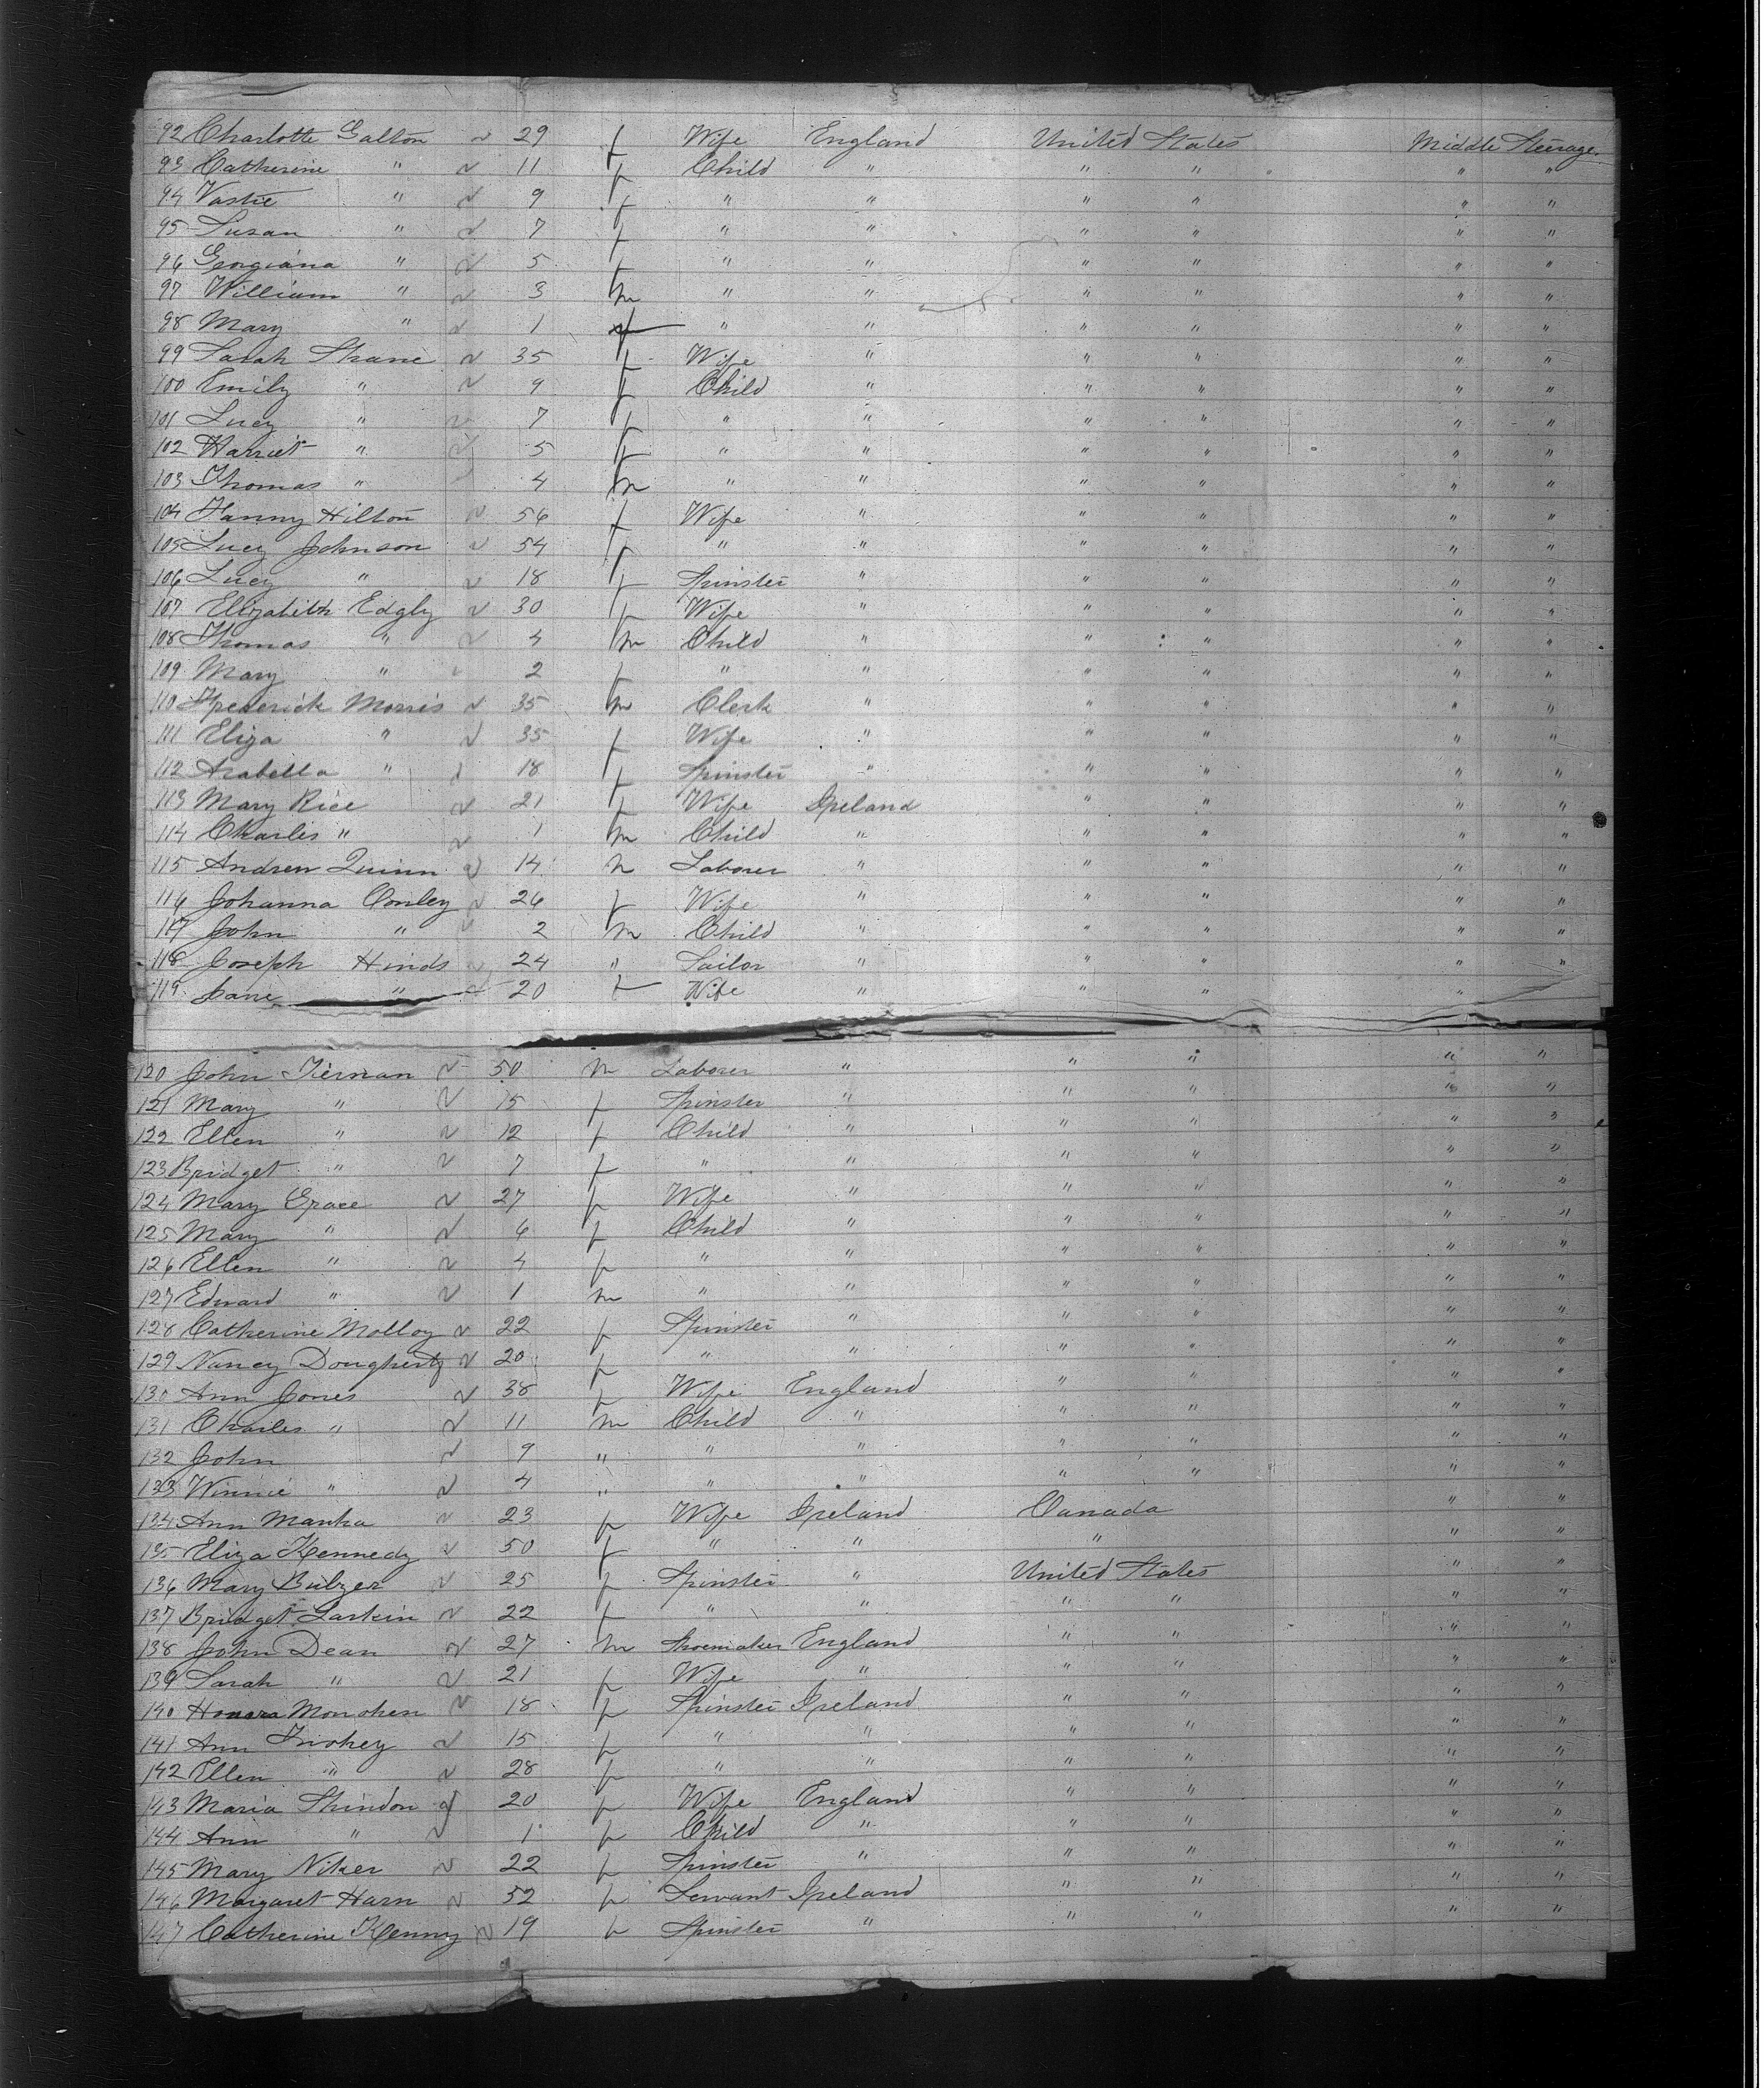 92 Charlotte Galton 29 f Wife England United States Middle Steerage
93 Catherine " 11 f Child " " " " "
94 Vastie " 9 f " " " " " "
95 Susan " 7 f " " " " " "
96 Georgiana " 5 f " " " " " "
97 William " 3 m " " " " " "
98 Mary " 1 f " " " " " "
99 Sarah Shane 35 f Wife " " " " "
100 Emily " 9 f Child " " " " "
101 Lucy " 7 f " " " " " "
102 Harriet " 5 f " " " " " "
103 Thomas " 4 m " " " " " "
104 Fanny Hilton 56 f Wife " " " " "
105 Lucy Johnson 54 f " " " " " "
106 Lucy " 18 f Spinster " " " " "
107 Elizabeth Edgly 30 f Wife " " " " "
108 Thomas " 4 m Child " " " " "
109 Mary " 2 f " " " " " "
110 Frederick Morris 35 m Clerk " " " " "
111 Eliza " 35 f Wife " " " " "
112 Arabella " 18 f Spinster " " " " "
113 Mary Rice 21 f Wife Ireland " " " "
114 Charles " 1 m Child " " " " "
115 Andrew Quinn 14 m Laborer " " " " "
116 Johanna Conley 26 f Wife " " " " "
117 John " 2 m Child " " " " "
118 Joseph Hinds 24 " Sailor " " " " "
119 Jane " 20 f Wife " " " "
120 John Tiernan 50 m Laborer " " " " "
121 Mary " 15 f Spinster " " " " "
122 Ellen " 12 f Child " " " " "
123 Bridget " 7 f " " " " " "
124 Mary Grace 27 f Wife " " " " "
125 Mary " 6 f Child " " " " "
126 Ellen " 4 f " " " " " "
127 Edward " 1 m " " " " " "
128 Catherine Molloy 22 f Spinster " " " " "
129 Nancy Dougherty 20 f " " " " " "
130 Ann Jones 38 f Wife England " " " "
131 Charles " 11 m Child " " " " "
132 John 9 " " " " " " "
133 Winnie " 4 " " " " " " "
134 Ann Manka 23 f Wife Ireland Canada " "
135 Eliza Kennedy 50 f " " " " "
136 Mary Bulzer 25 f Spinster " United States " "
137 Bridget Larkin 22 f " " " " " "
138 John Dean 27 m Shoemaker England " " " "
139 Sarah " 21 f Wife " " " " "
140 Honora Monohen 18 f Spinster Ireland " " " "
141 Ann Twohey 15 f " " " " " "
142 Ellen " 28 f " " " " " "
143 Maria Shindon 20 f Wife England " " " "
144 Ann " 1 f Child " " " " "
145 Mary Niker 22 f Spinster " " " " "
146 Margaret Harn 52 f Servant Ireland " " " "
147 Catherine Kenny 19 f Spinster " " " " "